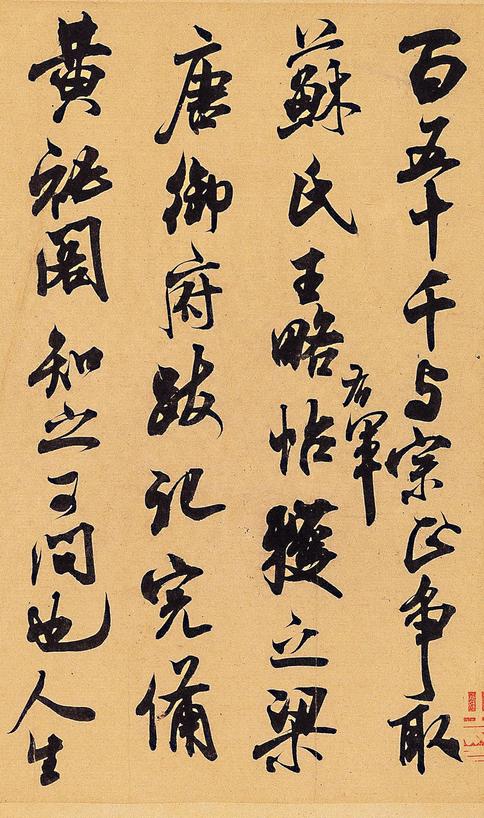 百五十千与宗正争取
右軍
蘇氏王略帖獲之梁
唐御府跋記完備
黃祕閣知之可問也人生